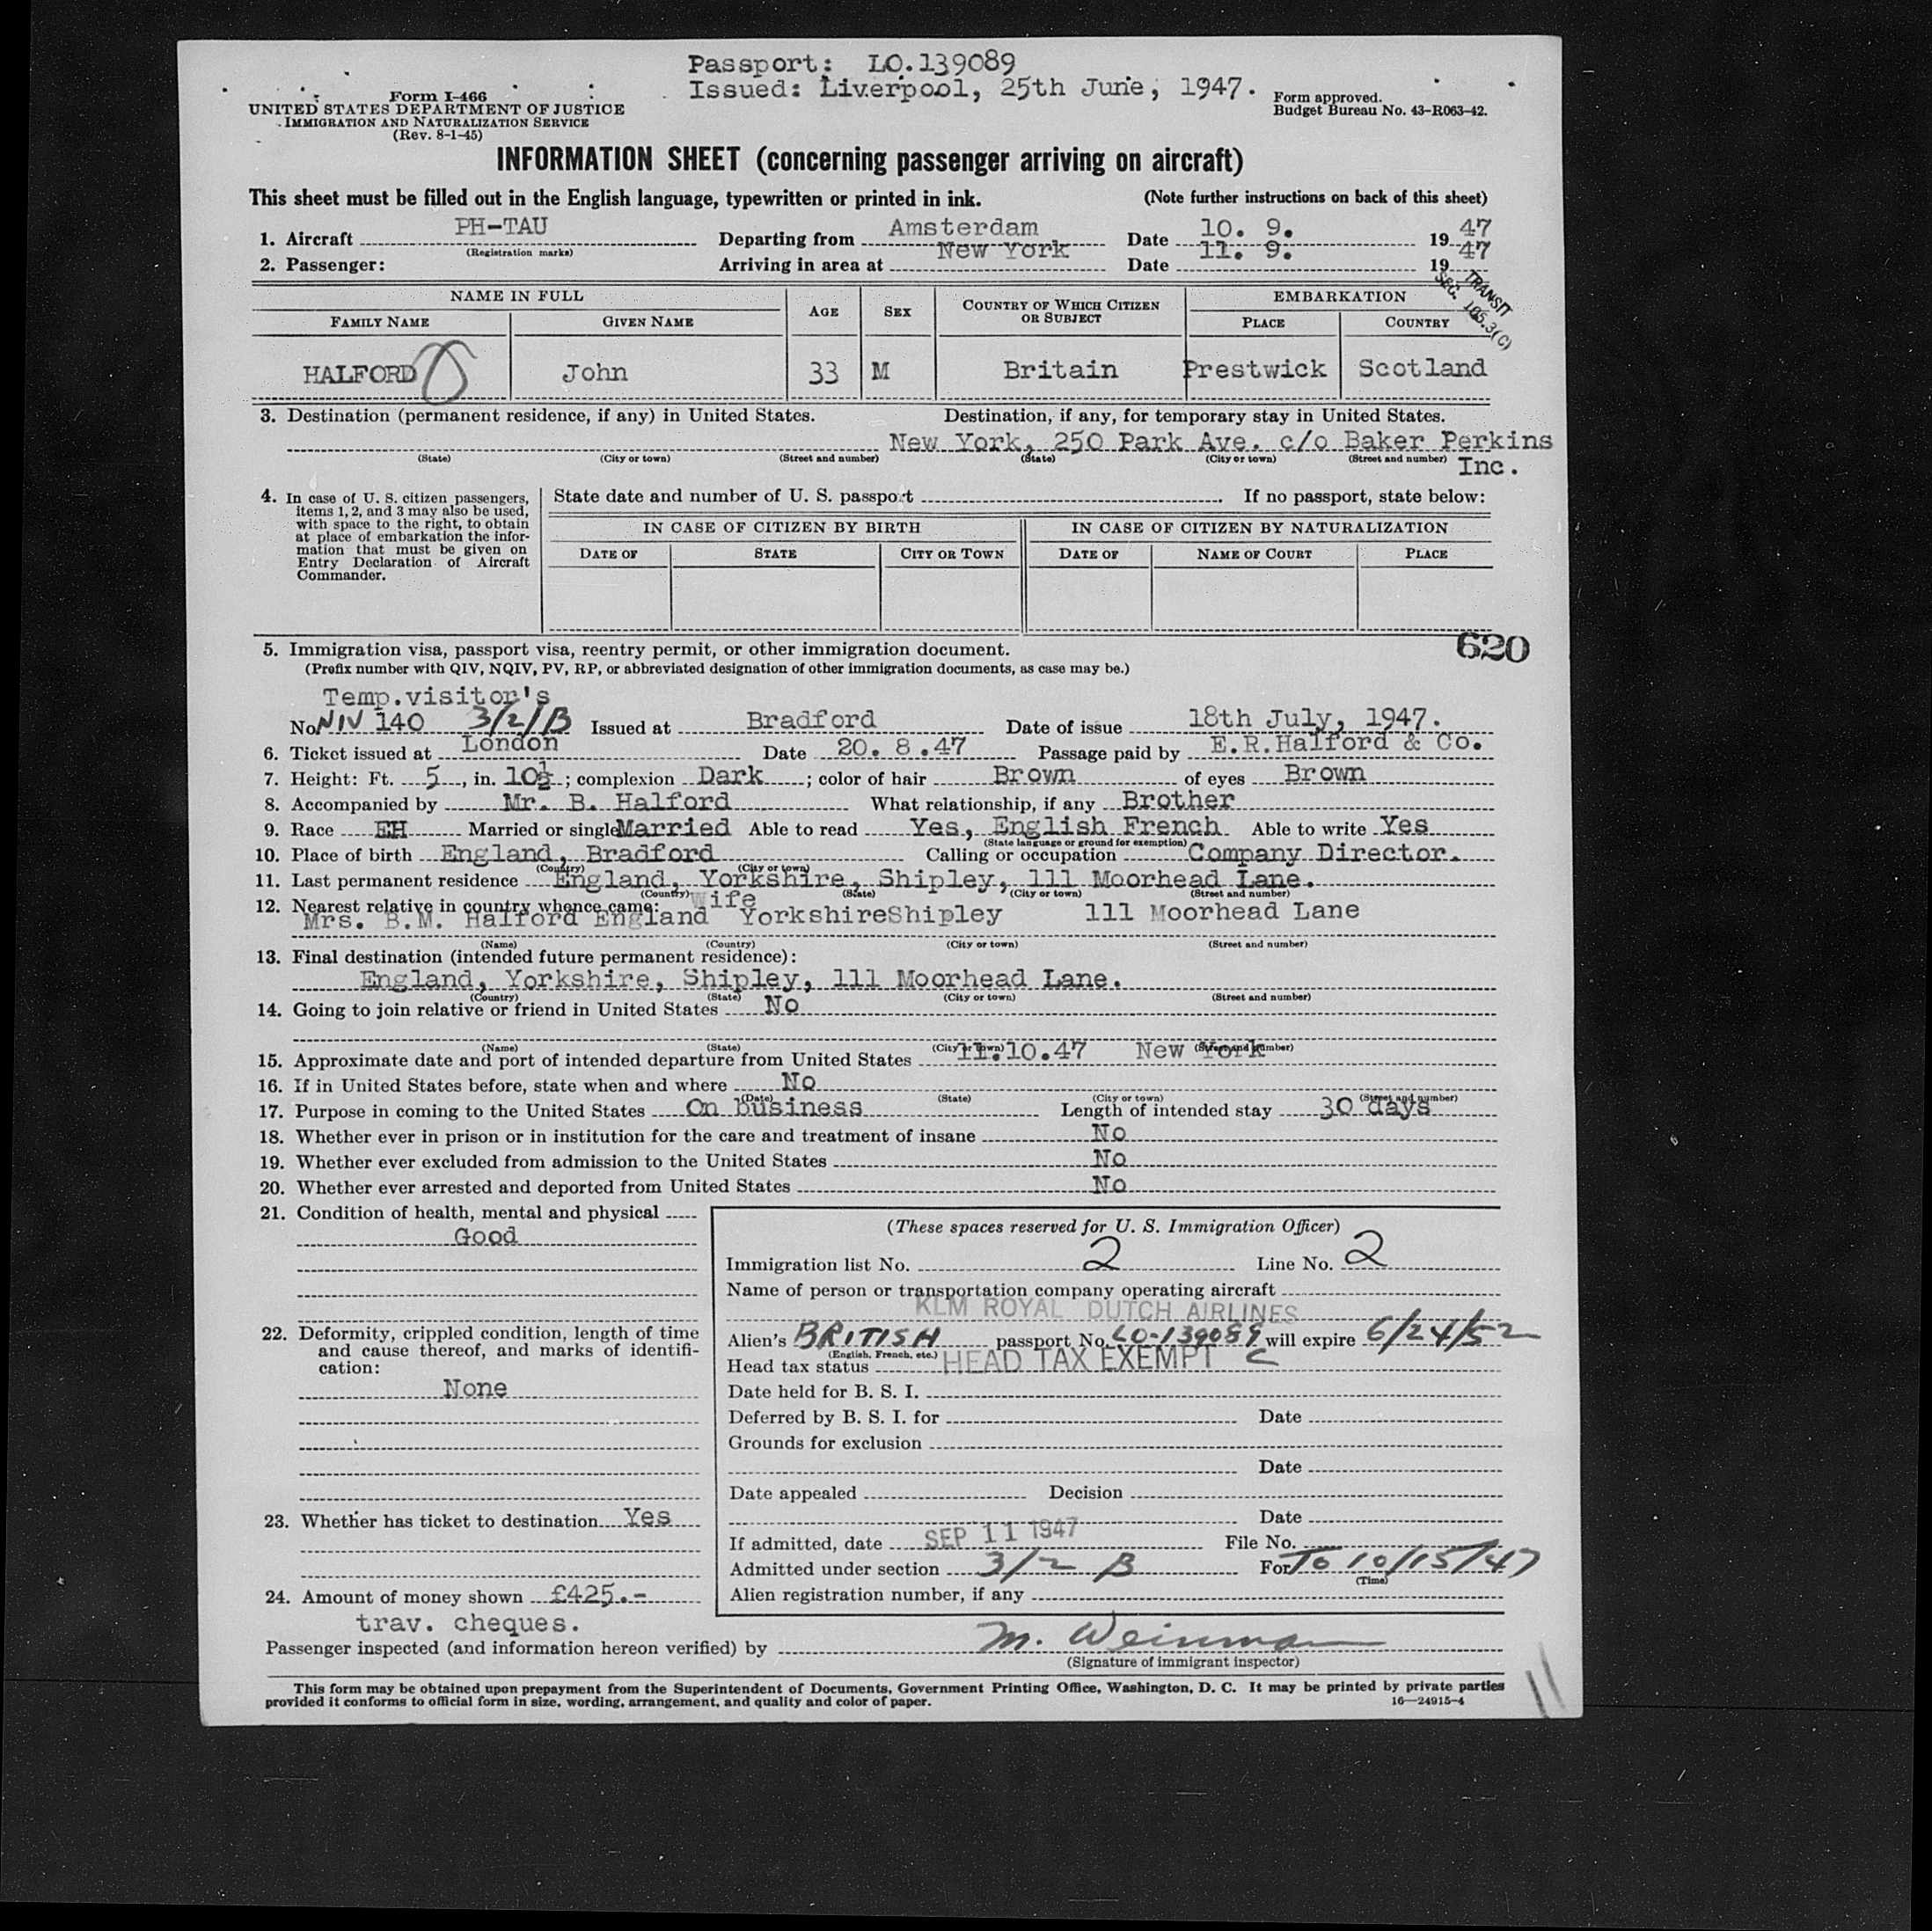 Passport: LO.139089
Issued: Liverpool, 25th June, 1947.
Form I-466
UNITED STATES DEPARTMENT OF JUSTICE
IMMIGRATION AND NATURALIZATION SERVICE
(Rev. 8-1-45)
Form approved.
Budget Bureau No. 43-R063-42.
INFORMATION SHEET (concerning passenger arriving on aircraft)
This sheet must be filled out in the English language, typewritten or printed in ink. (Note further instructions on back of this sheet)
1. Aircraft PH-TAU Departing from Amsterdam Date 10. 9. 1947
(Registration marks)
2. Passenger: Arriving in area at New York Date 11. 9. 1947
TRANSIT
SEC. 105.3(C)
NAME IN FULL AGE SEX COUNTRY OF WHICH CITIZEN OR SUBJECT EMBARKATION
FAMILY NAME GIVEN NAME PLACE COUNTRY
HALFORD John 33 M Britain Prestwick Scotland
3. Destination (permanent residence, if any) in United States. Destination, if any, for temporary stay in United States.
New York, 250 Park Ave. c/o Baker Perkins
(State) (City or town) (Street and number) (State) (City or town) (Street and number) Inc.
4. In case of U. S. citizen passengers, items 1, 2, and 3 may also be used, with space to the right, to obtain at place of embarkation the information that must be given on Entry Declaration of Aircraft Commander.
State date and number of U. S. passport . If no passport, state below:
IN CASE OF CITIZEN BY BIRTH IN CASE OF CITIZEN BY NATURALIZATION
DATE OF STATE CITY OR TOWN DATE OF NAME OF COURT PLACE
620
5. Immigration visa, passport visa, reentry permit, or other immigration document.
(Prefix number with QIV, NQIV, PV, RP, or abbreviated designation of other immigration documents, as case may be.)
Temp.visitor's
No. NIV 140 3/2/B Issued at Bradford Date of issue 18th July, 1947.
6. Ticket issued at London Date 20. 8 .47 Passage paid by E.R.Halford & Co.
7. Height: Ft. 5, in. 10½; complexion Dark; color of hair Brown of eyes Brown
8. Accompanied by Mr. B. Halford What relationship, if any Brother
9. Race EH Married or single Married Able to read Yes, English French Able to write Yes
(State language or ground for exemption)
10. Place of birth England, Bradford Calling or occupation Company Director.
(Country) (City or town)
11. Last permanent residence England, Yorkshire, Shipley, 111 Moorhead Lane.
(Country) (State) (City or town) (Street and number)
12. Nearest relative in country whence came: Wife
Mrs. B.M. Halford England Yorkshire Shipley 111 Moorhead Lane
(Name) (Country) (City or town) (Street and number)
13. Final destination (intended future permanent residence):
England, Yorkshire, Shipley, 111 Moorhead Lane.
(Country) (State) (City or town) (Street and number)
14. Going to join relative or friend in United States No
(Name) (State) (City or town) (Street and number)
15. Approximate date and port of intended departure from United States 11.10.47 New York
16. If in United States before, state when and where No
(Date) (State) (City or town) (Street and number)
17. Purpose in coming to the United States On business Length of intended stay 30 days
18. Whether ever in prison or in institution for the care and treatment of insane No
19. Whether ever excluded from admission to the United States No
20. Whether ever arrested and deported from United States No
21. Condition of health, mental and physical
Good
22. Deformity, crippled condition, length of time and cause thereof, and marks of identification:
None
23. Whether has ticket to destination Yes
24. Amount of money shown £425.-
trav. cheques.
(These spaces reserved for U. S. Immigration Officer)
Immigration list No. 2 Line No. 2
Name of person or transportation company operating aircraft
KLM ROYAL DUTCH AIRLINES
Alien's BRITISH passport No. LO-139089 will expire 6/24/52
(English, French, etc.)
Head tax status HEAD TAX EXEMPT C
Date held for B. S. I.
Deferred by B. S. I. for Date
Grounds for exclusion
Date
Date appealed Decision
Date
If admitted, date SEP 11 1947 File No.
Admitted under section 3/2 B For To 10/15/47
(Time)
Alien registration number, if any
Passenger inspected (and information hereon verified) by M. Weinman
(Signature of immigrant inspector)
This form may be obtained upon prepayment from the Superintendent of Documents, Government Printing Office, Washington, D. C. It may be printed by private parties
provided it conforms to official form in size, wording, arrangement, and quality and color of paper. 16—24915-4
11